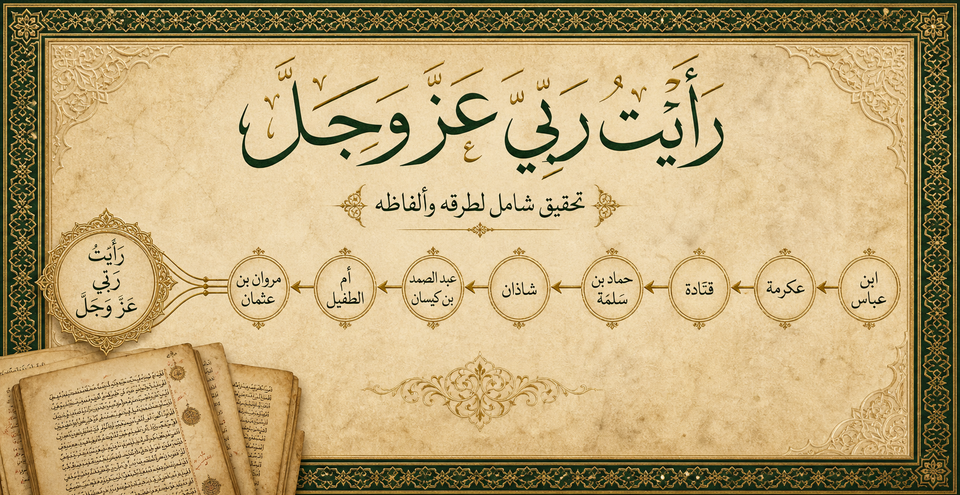 رَأَيْتُ رَبِّيَّ عَزَّ وَجَلَّ
تحقيق شامل لطرقه وألفاظه
ابن عباس
عكرمة
قتادة
حماد بن سَلمَة
شاذان
عبد الصمد بن كيسان
أم الطفيل
مروان بن عثمان
رَأَيْتُ
رَبّي
عَزَّ وَجَلَّ